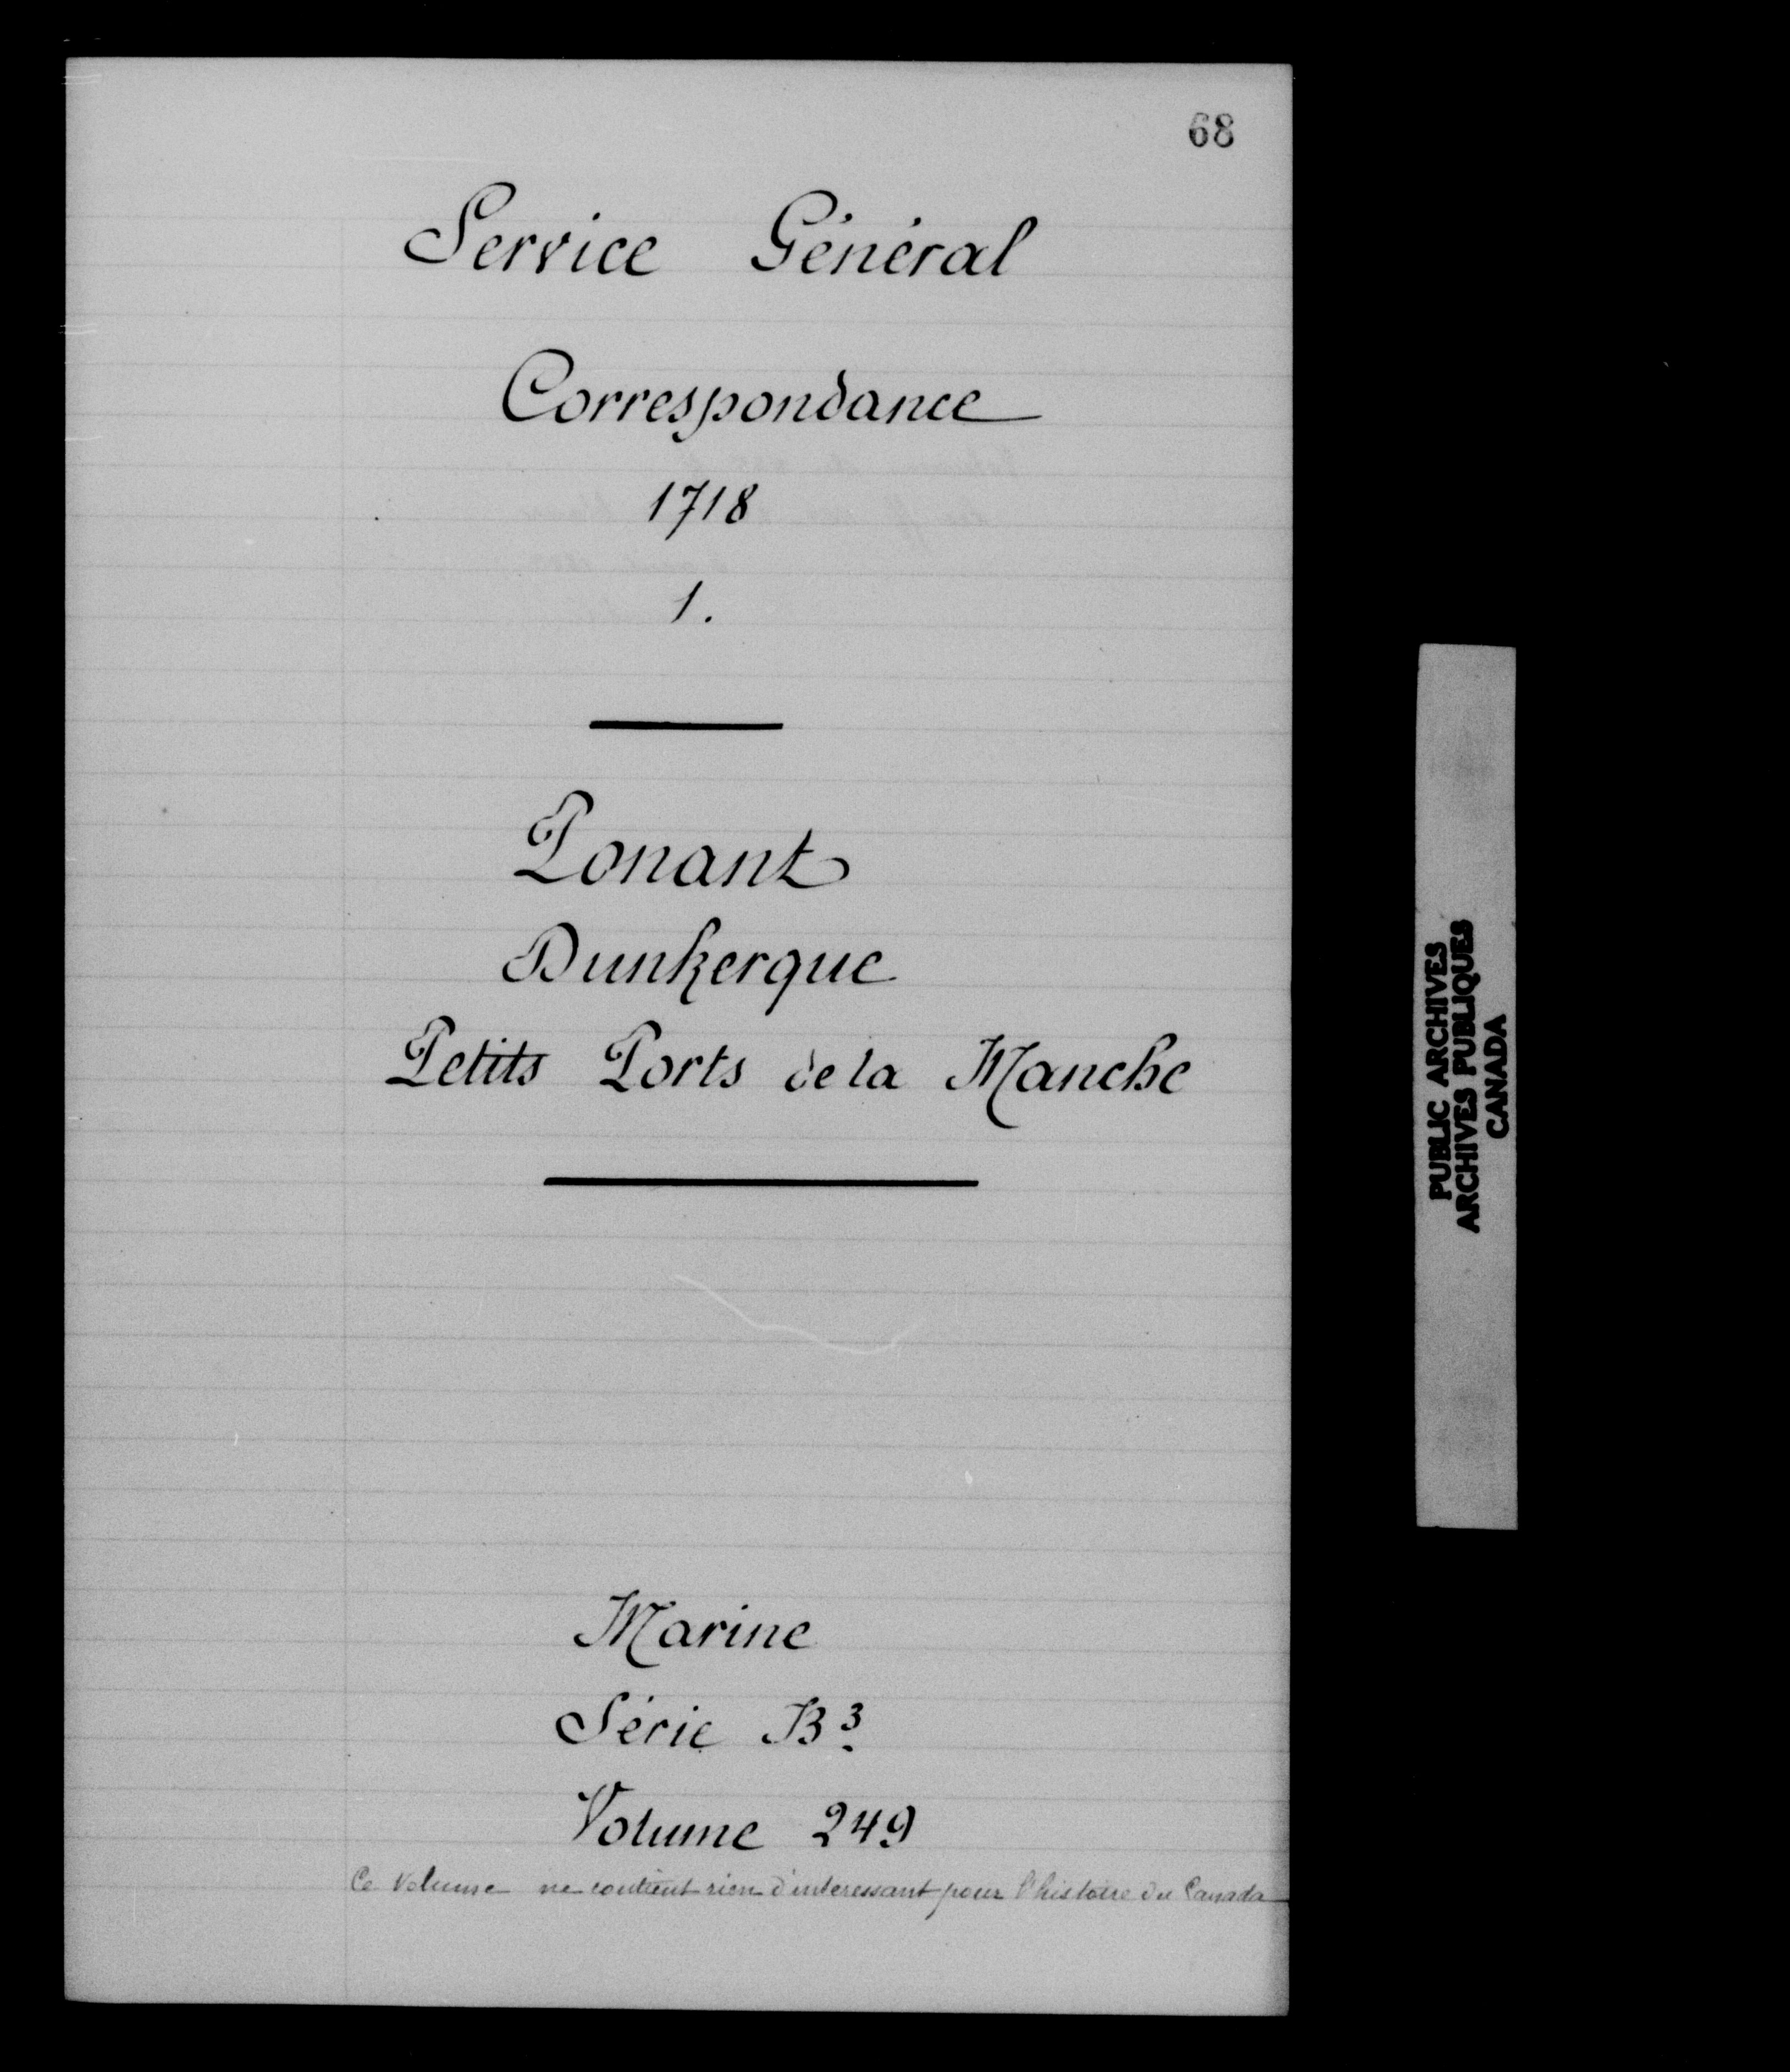 68
Service Général
Correspondance
1718
1.
Ponant
Dunkerque
Petits Ports de la Manche
Marine
Série B3.
Volume 249
Ce Volume ne contient rien d'interessant pour l'histoire du Canada
PUBLIC ARCHIVES
ARCHIVES PUBLIQUES
CANADA